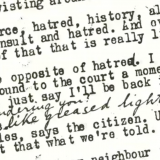 visting arou
rce, hatred, history, al
nsult and hatred. And
f that that is really li
opposite of hatred. I
ound to the court a mome
just say I'll be back
like greased light
les, says the citizen. U
t that what we're told.
neighbour